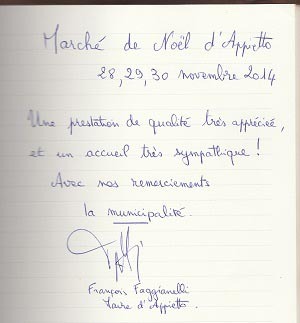 Marché de Noël d'Appietto
28, 29, 30 novembre 2014
Une prestation de qualité très appréciée,
et un accueil très sympathique !
Avec nos remerciements
la municipalité.
François Faggianelli
Maire d'Appietto.